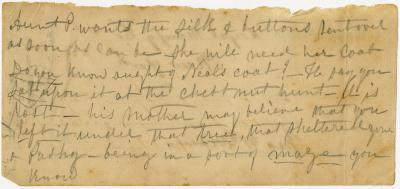 Aunt P. wants the silk & buttons sent over
as soon as can be – She will need her coat
Do you know aught of Neal's coat? – He say you
sat upon it at the chestnut hunt – It is
lost – his mother may believe that you
left it under that tree, that sheltered you
& – being in a sort of maze – you
know